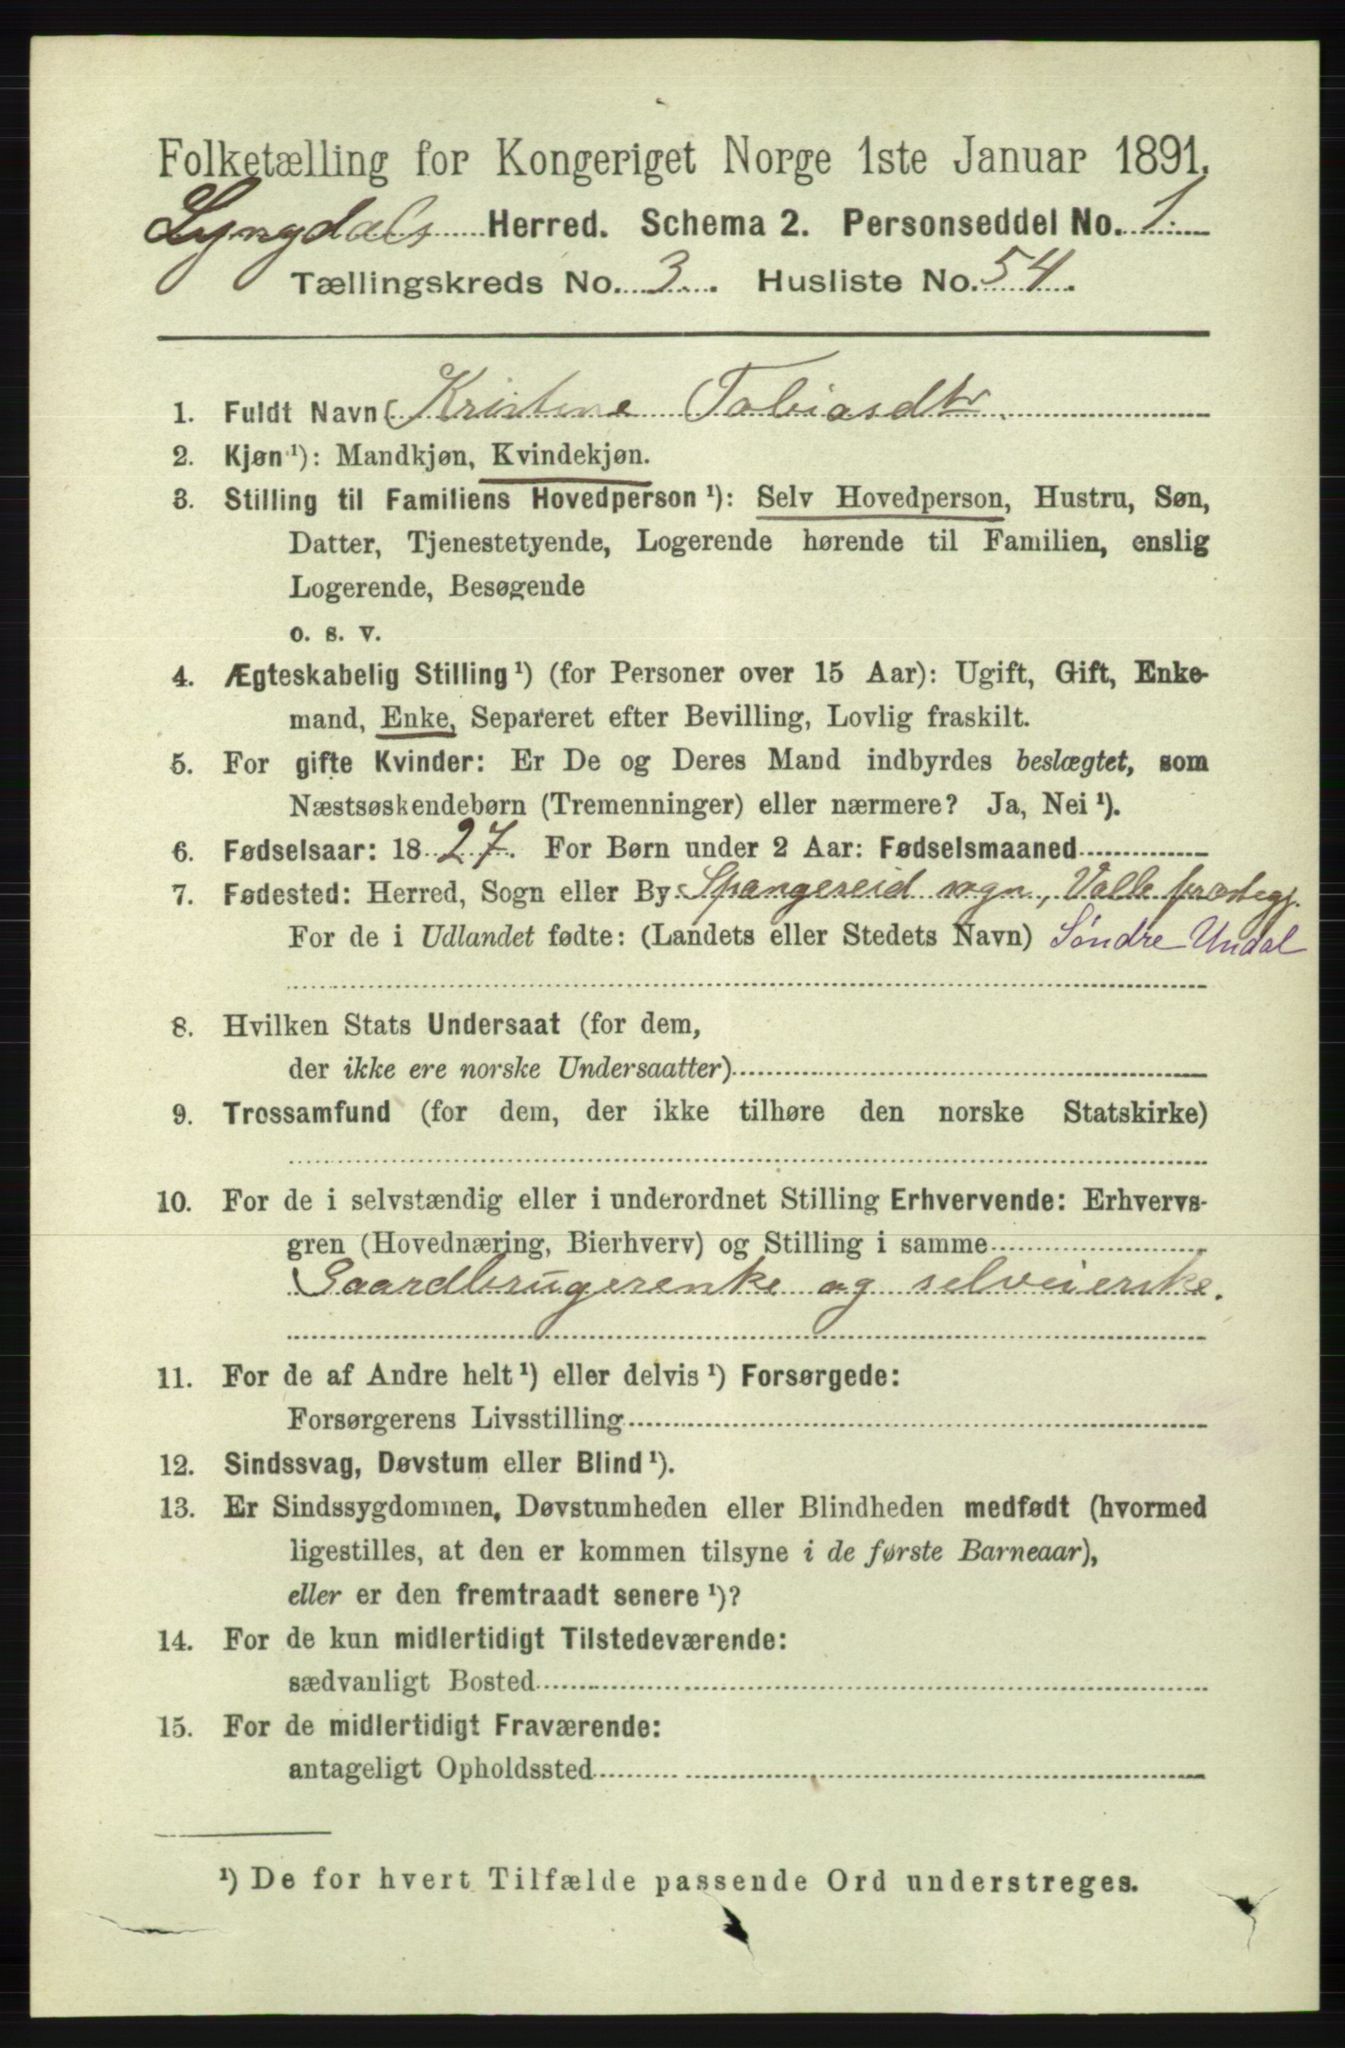 Folketælling for Kongeriget Norge 1ste Januar 1891.
Lyngdals Herred. Schema 2. Personseddel No. 1.
Tællingskreds No. 3. Husliste No. 54.
1. Fuldt Navn Kristine Tobiasdtr.
2. Kjøn¹): Mandkjøn, Kvindekjøn.
3. Stilling til Familiens Hovedperson¹): Selv Hovedperson, Hustru, Søn,
Datter, Tjenestetyende, Logerende hørende til Familien, enslig
Logerende, Besøgende
o. s. v.
4. Ægteskabelig Stilling¹) (for Personer over 15 Aar): Ugift, Gift, Enke-
mand, Enke, Separeret efter Bevilling, Lovlig fraskilt.
5. For gifte Kvinder: Er De og Deres Mand indbyrdes beslægtet, som
Næstsøskendebørn (Tremenninger) eller nærmere? Ja, Nei¹).
6. Fødselsaar: 1827. For Børn under 2 Aar: Fødselsmaaned
7. Fødested: Herred, Sogn eller By Spangereid sogn, Valle præstegj.
For de i Udlandet fødte: (Landets eller Stedets Navn) Söndre Undal
8. Hvilken Stats Undersaat (for dem,
der ikke ere norske Undersaatter)
9. Trossamfund (for dem, der ikke tilhøre den norske Statskirke)
10. For de i selvstændig eller i underordnet Stilling Erhvervende: Erhvervs-
gren (Hovednæring, Bierhverv) og Stilling i samme
Gaardbrugerenke og selveierske.
11. For de af Andre helt¹) eller delvis¹) Forsørgede:
Forsørgerens Livsstilling
12. Sindssvag, Døvstum eller Blind¹).
13. Er Sindssygdommen, Døvstumheden eller Blindheden medfødt (hvormed
ligestilles, at den er kommen tilsyne i de første Barneaar),
eller er den fremtraadt senere¹)?
14. For de kun midlertidigt Tilstedeværende:
sædvanligt Bosted
15. For de midlertidigt Fraværende:
antageligt Opholdssted
¹) De for hvert Tilfælde passende Ord understreges.